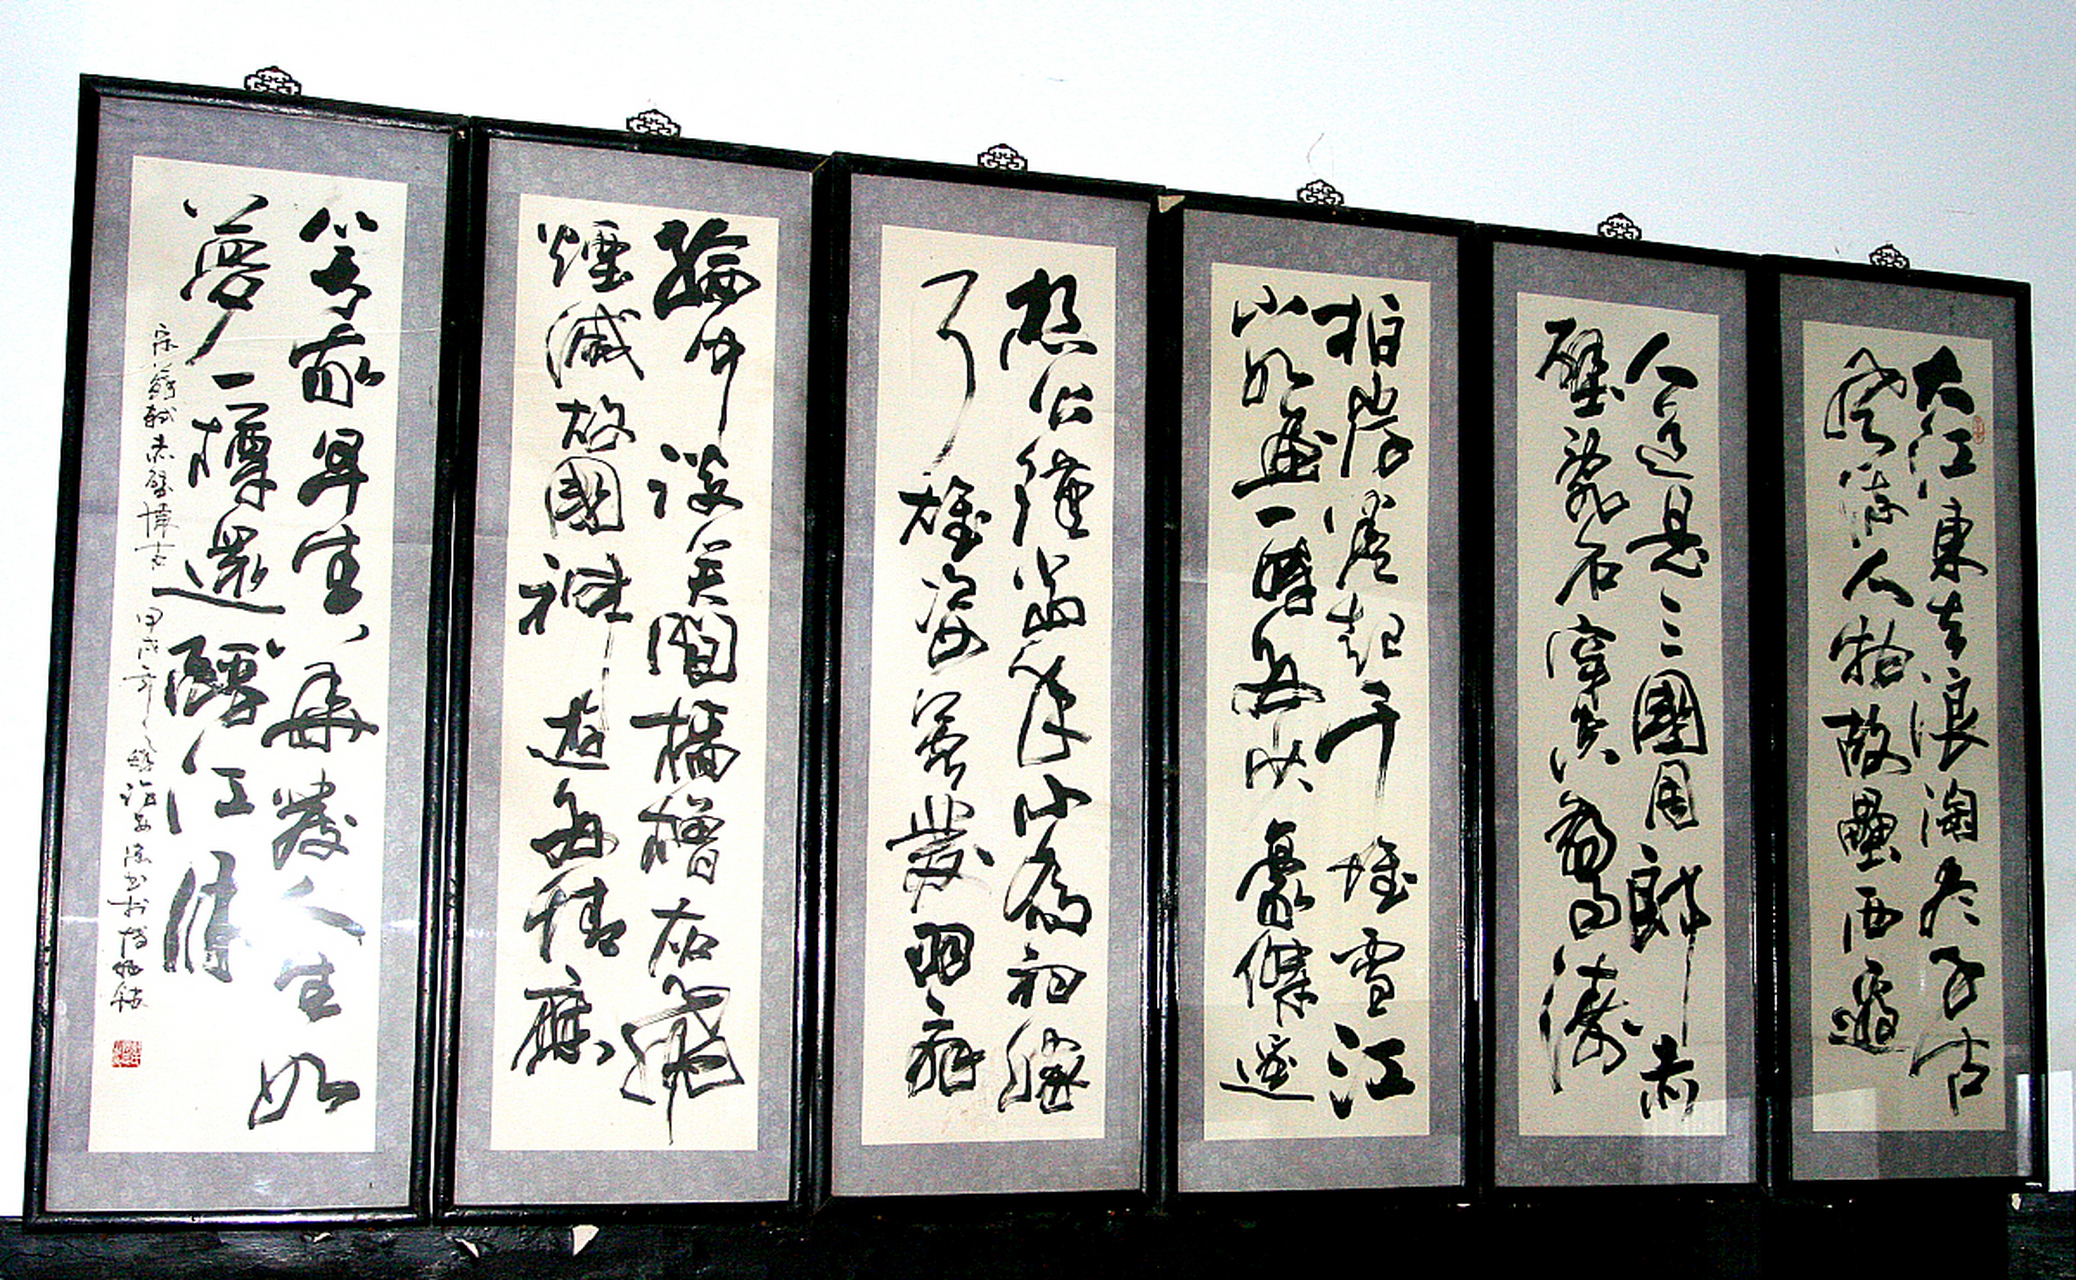 大江東去浪淘尽千古
風流人物故壘西邊
人道是三國周郎赤
壁亂石穿空驚濤
拍岸捲起千堆雪江
山如畫一時多少豪傑遥
想公瑾當年小喬初嫁
了雄姿英發羽扇
綸巾談笑間檣櫓灰飛
煙滅故國神遊多情應
笑我早生華發人生如
夢一樽還酹江
宋蘇軾赤壁懷古 甲戌年